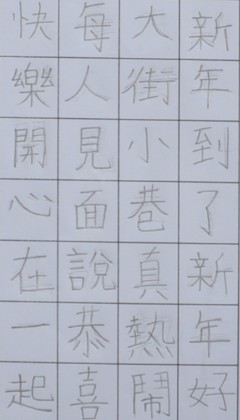 新年到了新年好
大街小巷真熱鬧
每人見面說恭喜
快樂開心在一起